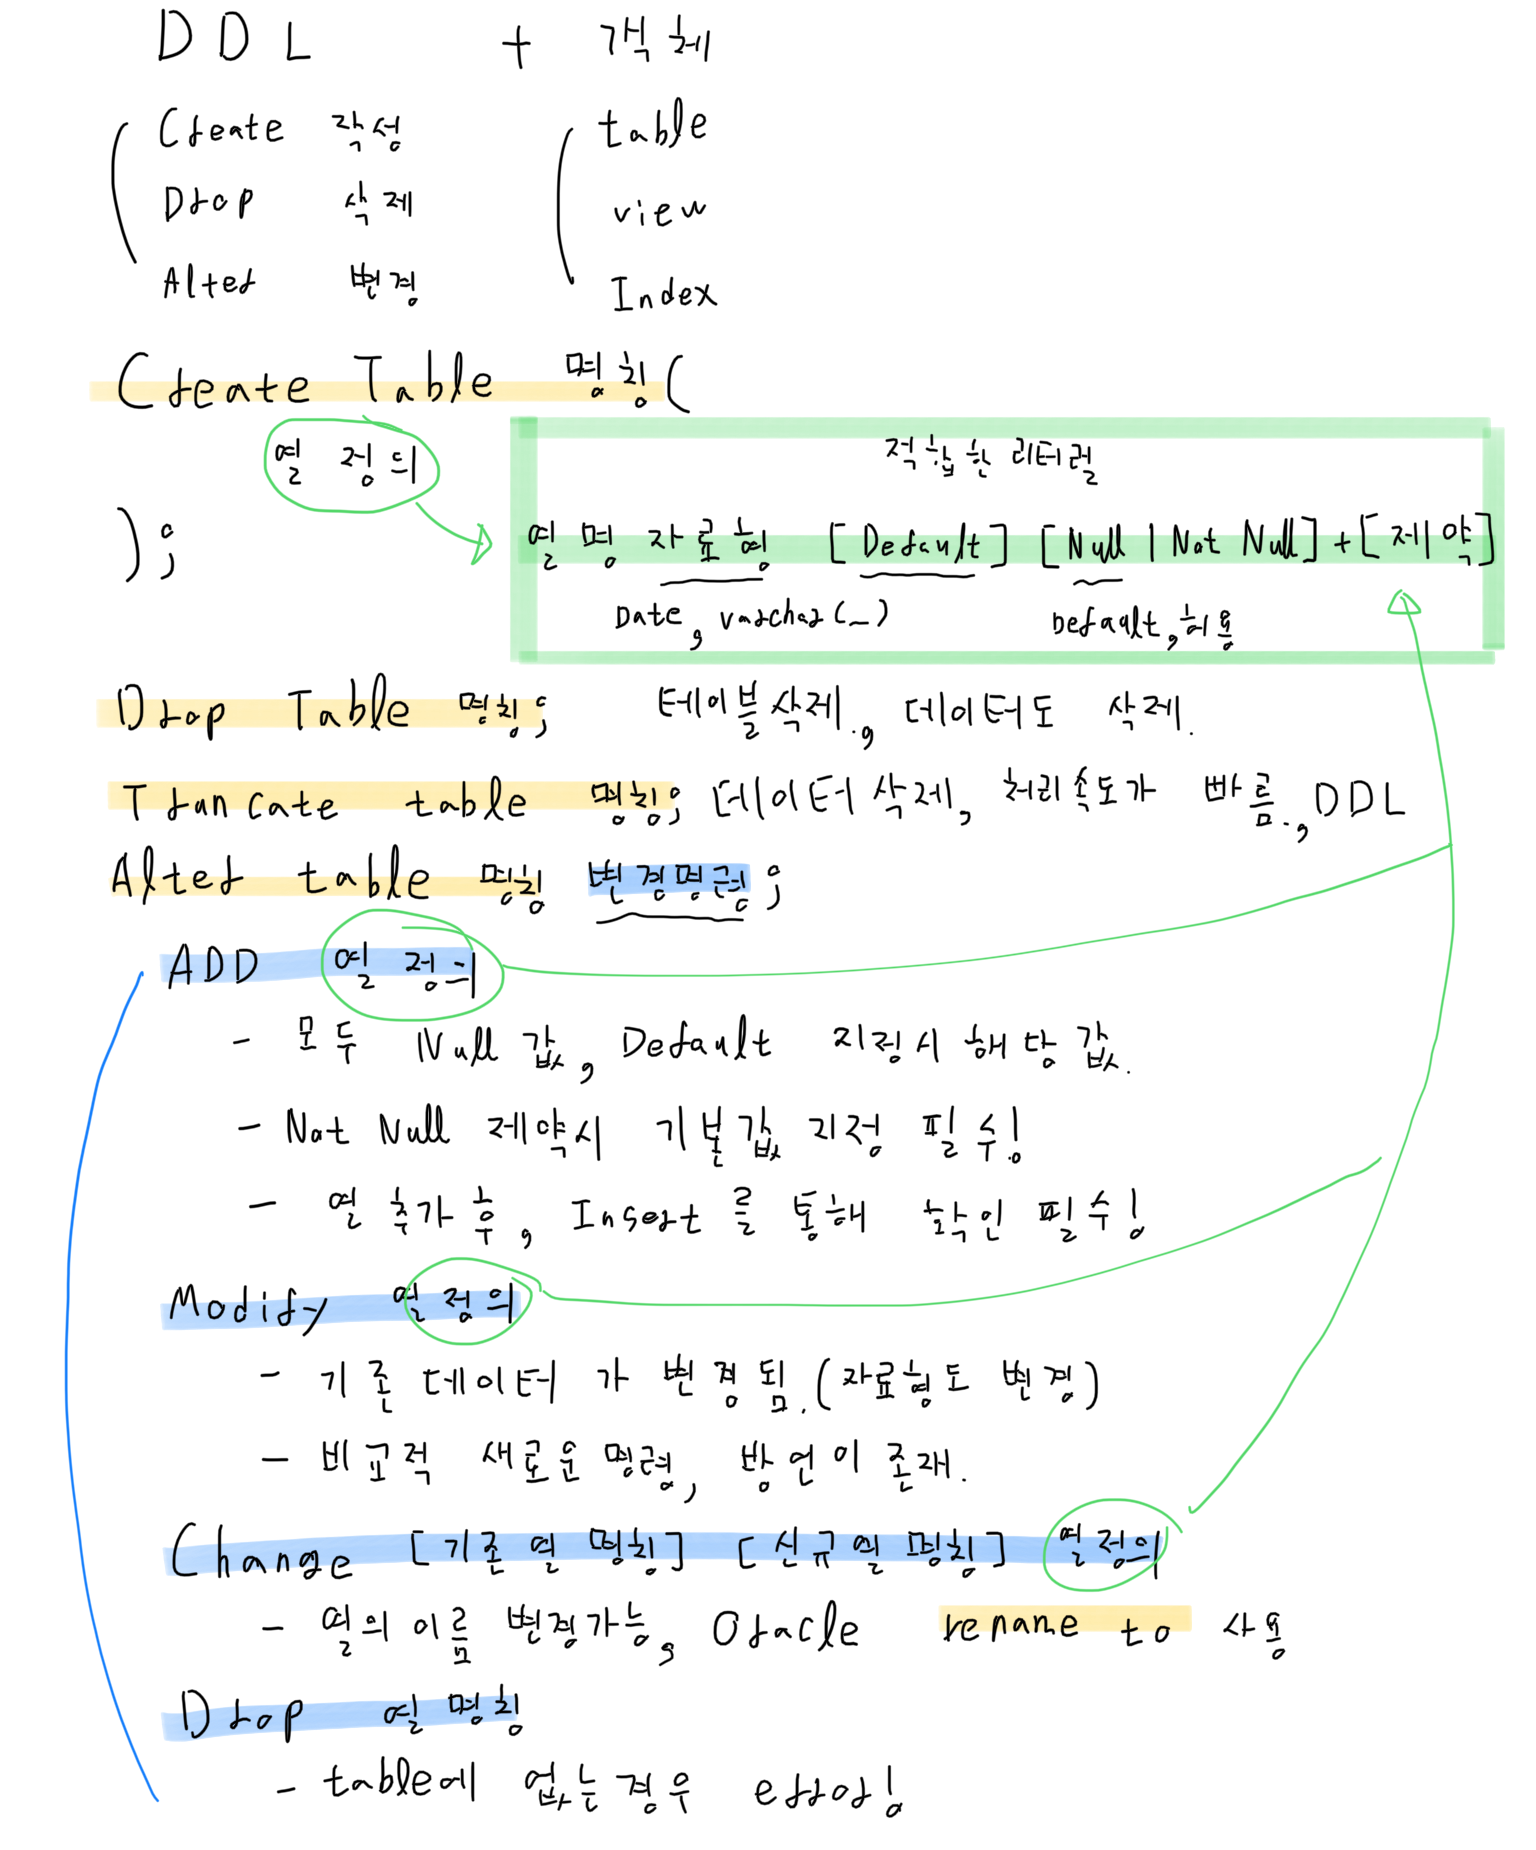 DDL + 객체
Create 작성 table
Drop 삭제 view
Alter 변경 Index
Create Table 명칭(
열 정의
적합한 리터럴
); 열명 자료형 [Default] [Null | Not Null] + [제약]
Date, varchar(_) Default, 허용
Drop Table 명칭; 테이블삭제., 데이터도 삭제.
Truncate table 명칭; 데이터삭제, 처리속도가 빠름., DDL
Alter table 명칭 변경명령;
ADD 열 정의
- 모두 Null 값, Default 지정시 해당 값.
- Not Null 제약시 기본값 지정 필수!
- 열 추가 후, Insert를 통해 확인 필수!
Modify 열 정의
- 기존 데이터가 변경됨.(자료형도 변경)
- 비교적 새로운 명령, 방언이 존재.
Change [기존 열 명칭] [신규열 명칭] 열정의
- 열의 이름 변경가능, Oracle rename to 사용
Drop 열 명칭
- table에 없는경우 error!